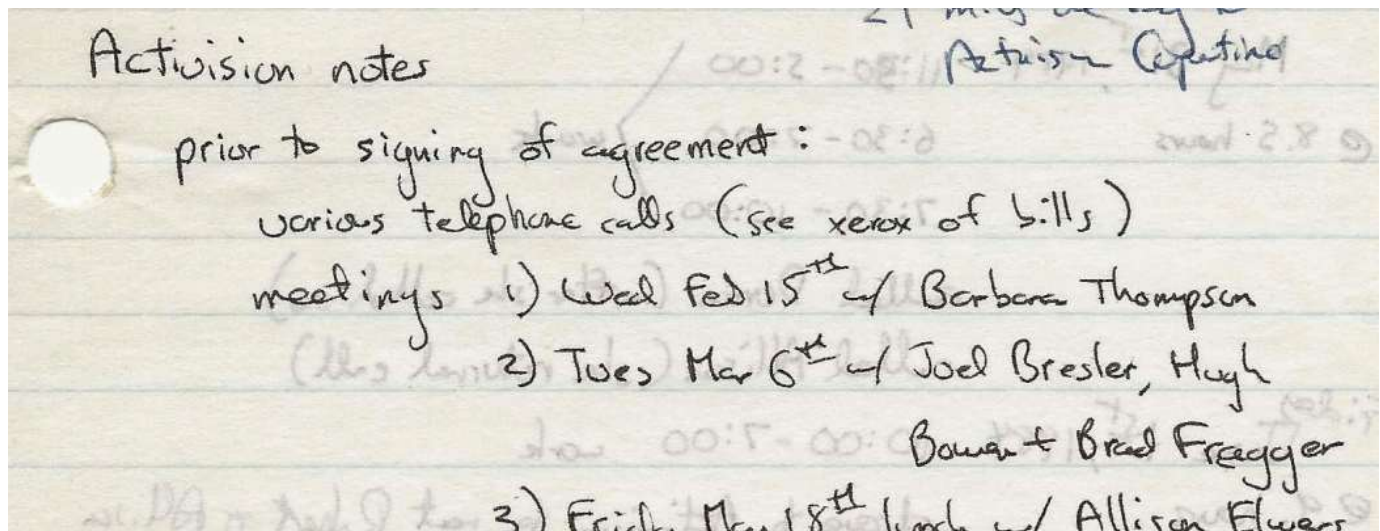 Activision notes
prior to signing of agreement:
various telephone calls (see xerox of bills)
meetings 1) Wed Feb 15th w/ Barbara Thompson
2) Tues Mar 6th w/ Joel Bresler, Hugh
Bowen + Brad Fregger
3) Friday May 18th lunch w/ Allison Elwers